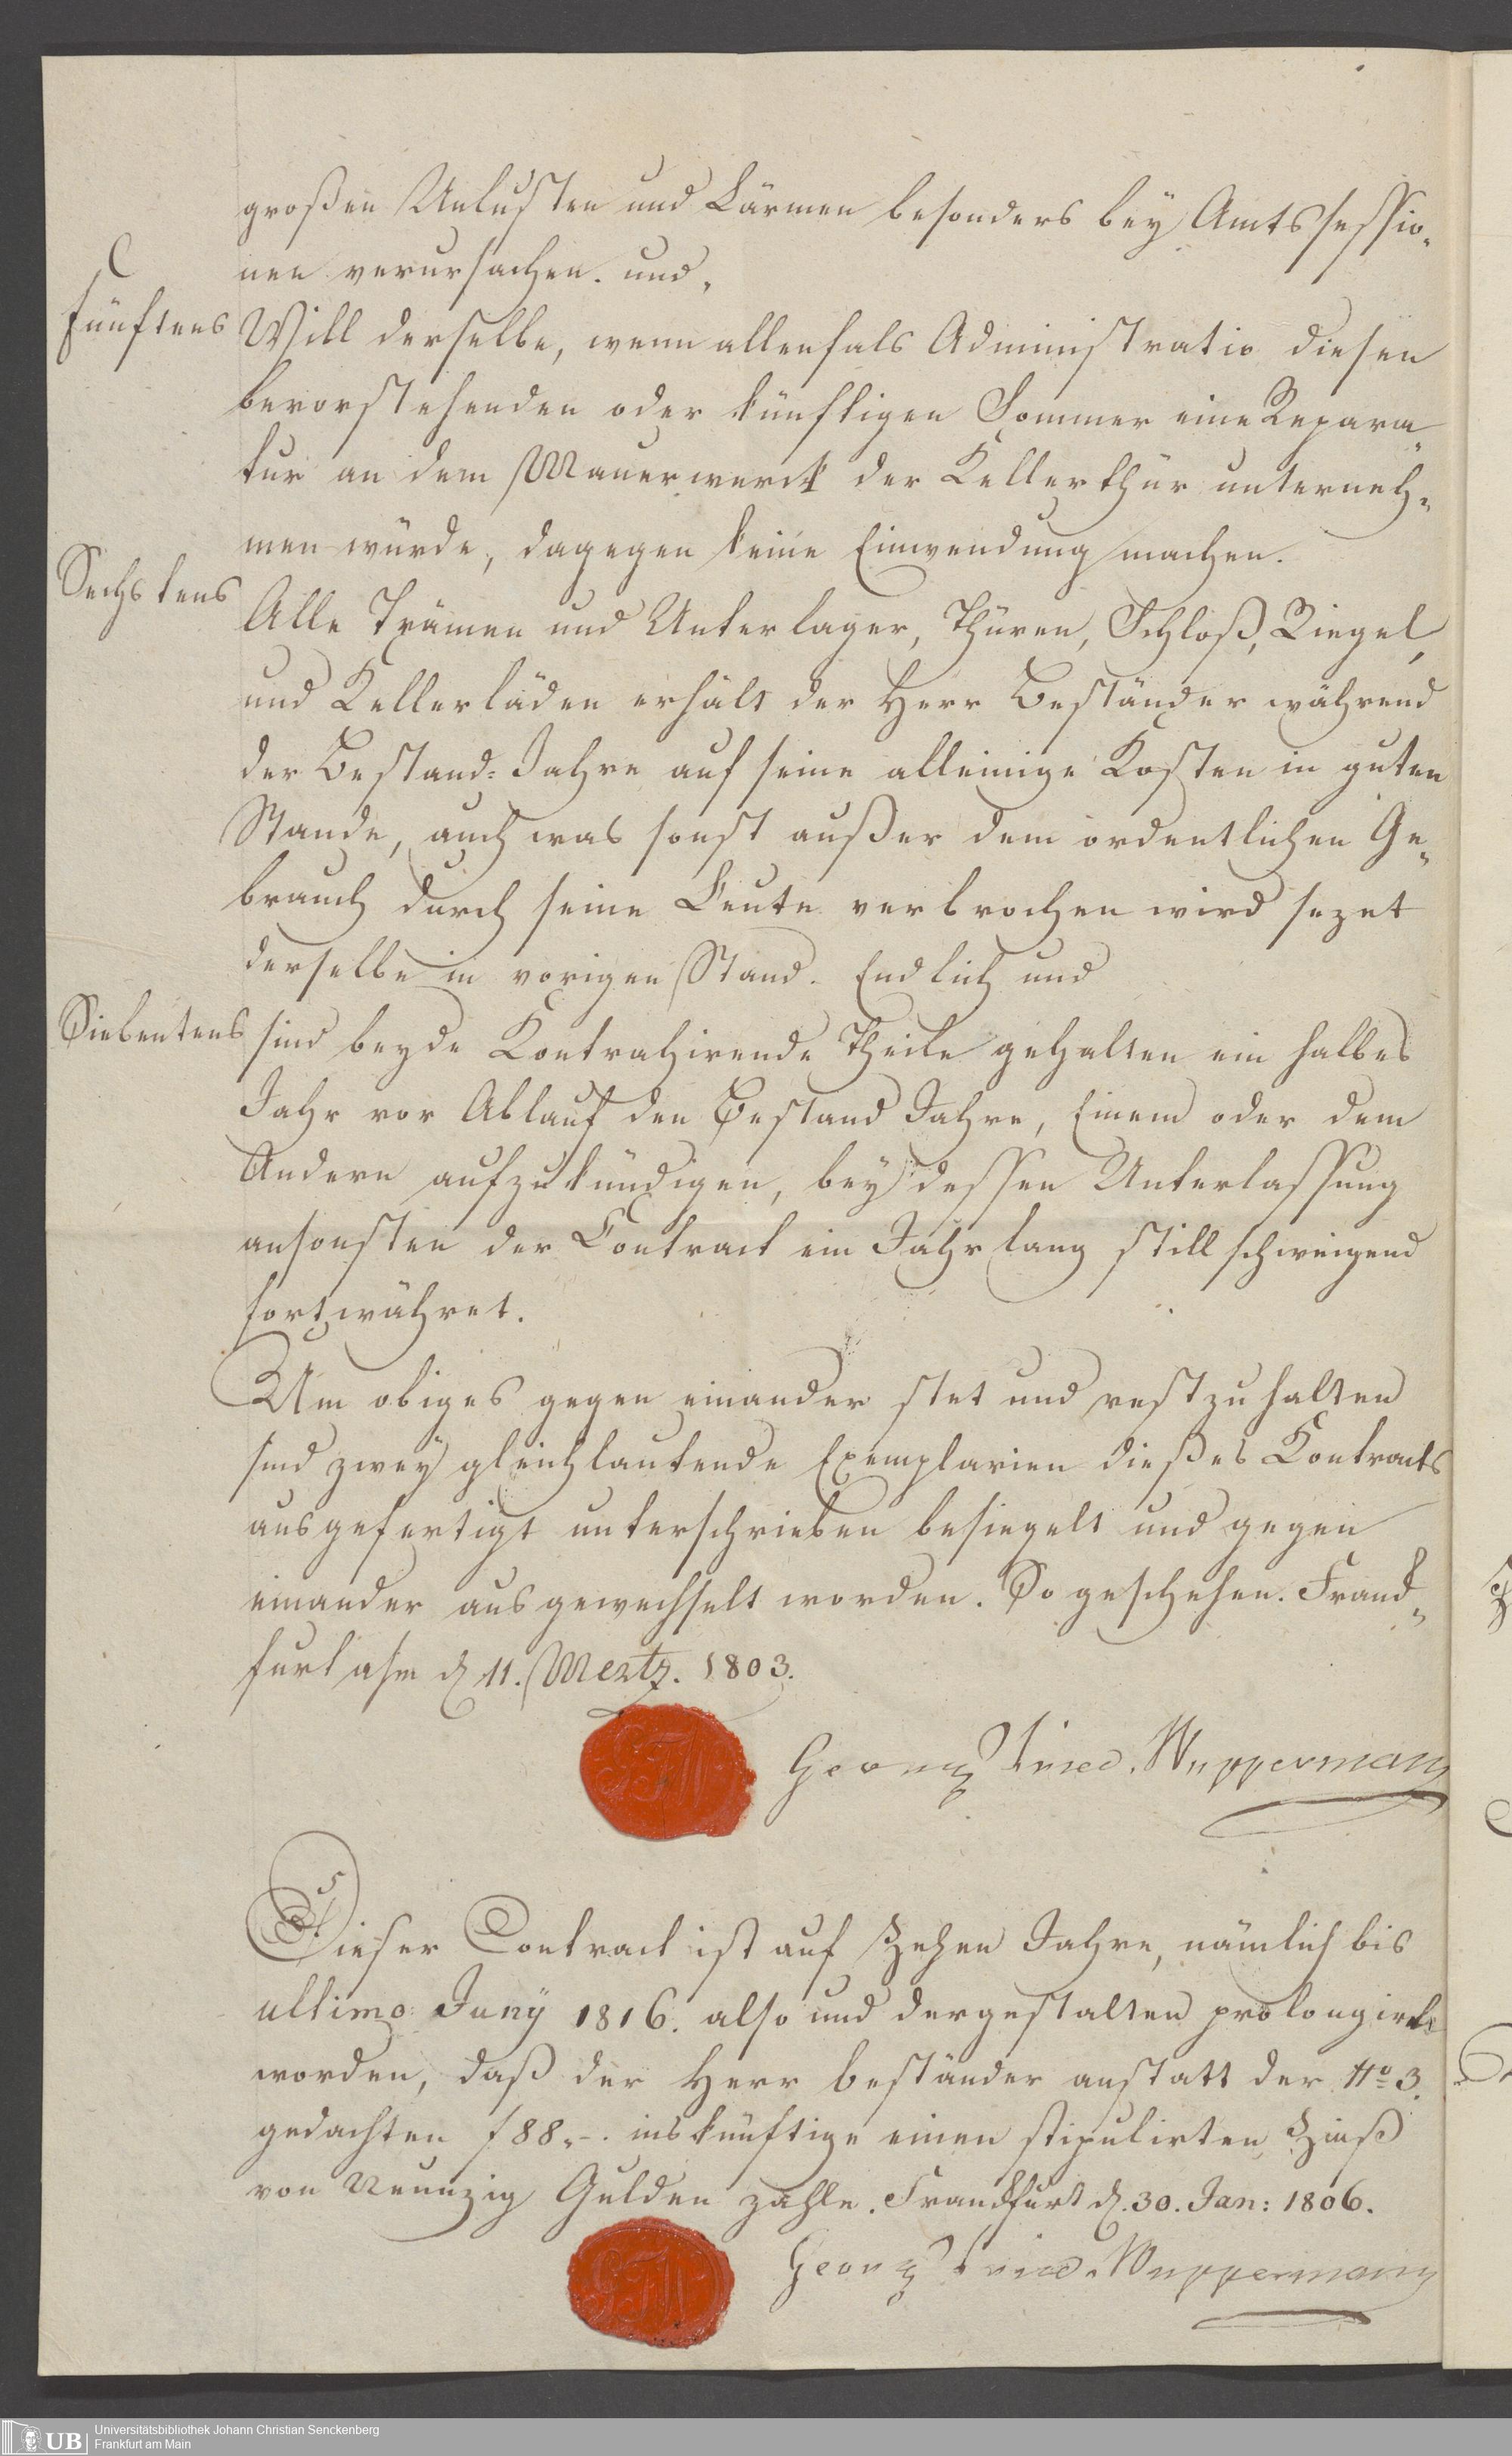 großen Unlusten und Lärmen besonders bey Amtssessio„
nen verursachen. und„
fünftens Will derselbe, wenn allenfals Administratio diesen
bevorstehenden oder künftigen Sommer eine Repara„
tur an dem Mauerwerck der Kellerthür unterneh„
men würde, dagegen keine Einwendung machen.
Sechstens Alle Trämen und Unterlager, Thüren, Schloß, Riegel,
und Kellerläden erhält der Herr Beständer während
der Bestand=Jahre auf seine alleinige Kosten in guten
Stande, auch was sonst außer dem ordentlichen Ge„
brauch durch seine Leute verbrochen wird sezet
derselbe in vorigen Stand. Endlich und
Siebentens sind beyde Kontrahirende Theile gehalten ein halbes
Jahr vor Ablauf den Bestand Jahre, Einem oder dem
Andern aufzukündigen, bey dessen Unterlassung
ansonsten der Contract ein Jahr lang stillschweigend
fortwähret.
Um obiges gegen einander stet und vest zu halten
sind zwey gleichlautende Exemplarien dießes Kontracts
ausgefertigt unterschrieben besiegelt und gegen
einander ausgewechselt worden. So geschehen. Franck„
furt a/m d 11. Mertz. 1803.
Georg Fried. Wuppermann
Dieser Contract ist auf Zehen Jahre, nämlich bis
ultimo Juny 1816. also und dergestalten prolongirt
worden, daß der Herr beständer anstatt der No 3.
gedachten f 88„–. ins künftige einen stipulirten Zinß
von Neunzig Gulden zahle. Franckfurt d. 30. Jan: 1806.
Georg Fried. Wuppermann
UB
Universitätsbibliothek Johann Christian Senckenberg
Frankfurt am Main